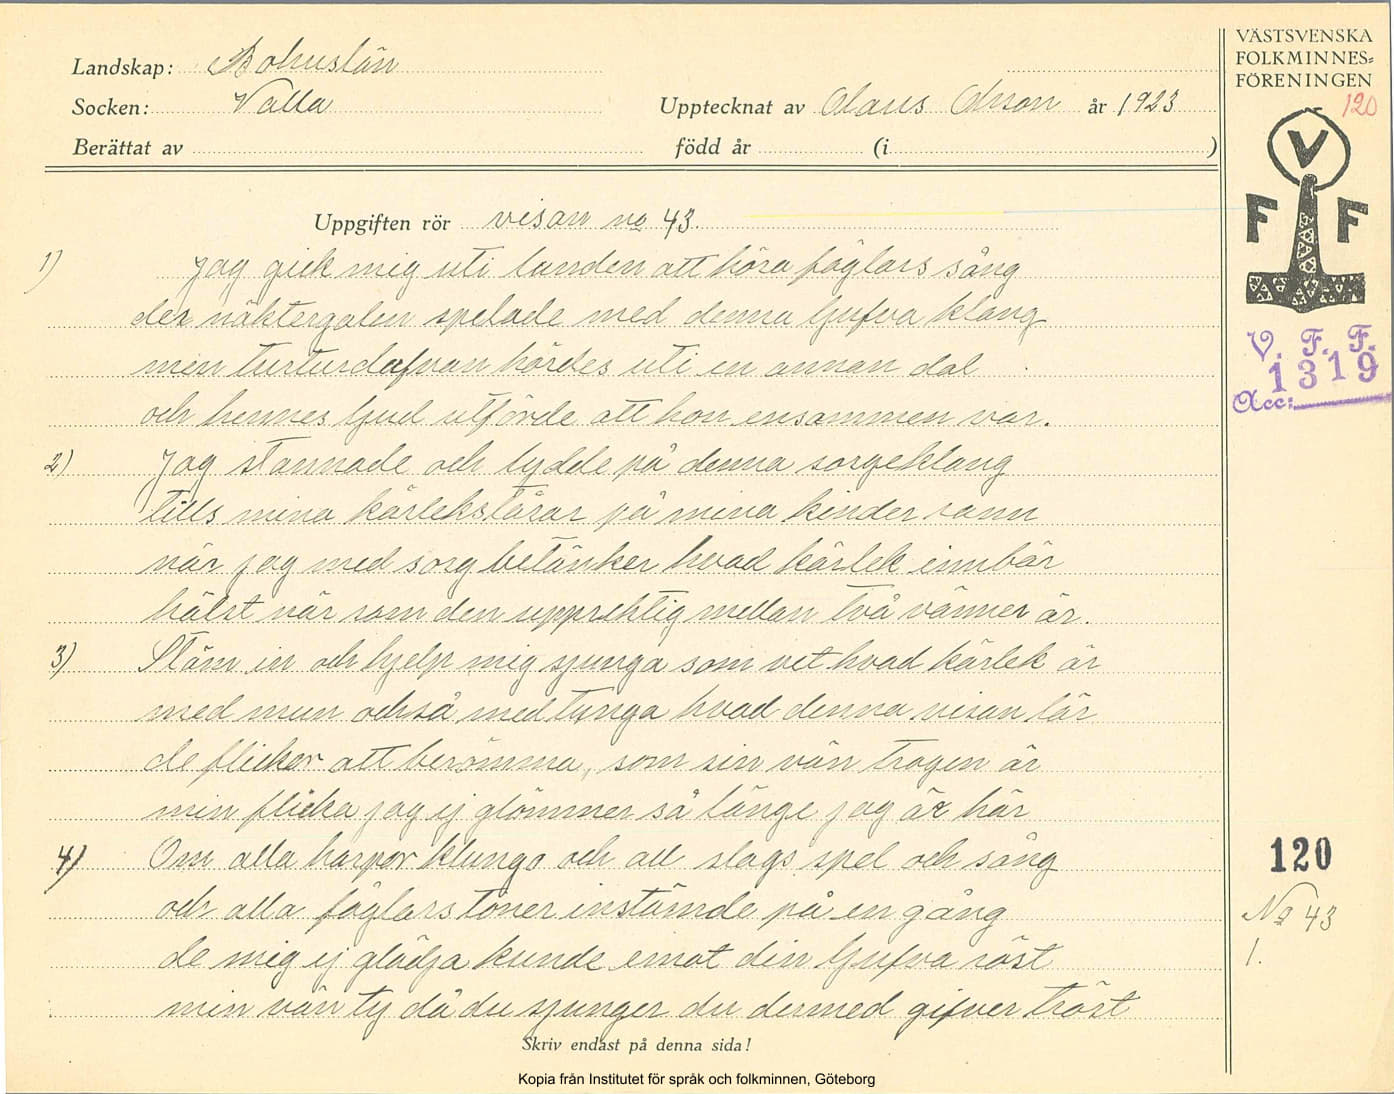 VÄSTSVENSKA
FOLKMINNES=
FÖRENINGEN
120
V
F F
V. F. F.
1319
Acc:
Landskap: Bohuslän
Socken: Valla
Upptecknat av Olaus Olsson år 1923
Berättat av
född år (i )
Uppgiften rör visan no 43.
1) Jag gick mig uti lunden att höra fåglars sång
der näktergalen spelade med denna ljufva klang
min turturdufvan hördes uti en annan dal
och hennes ljud utförde att hon ensammen var.
2) Jag stannade och lydde på denna sorgeklang
tills mina kärlekstårar på mina kinder rann
när jag med sorg betänker hvad kärlek innbär
hälst när som den upprektig mellan två vänner är.
3) Stäm in och hjelp mig sjunga som vet hvad kärlek är
med mun också med tunga hvad denna visan lär
de flickor att berömma, som sin vän trogen är
min flicka jag ej glömmer så länge jag är här
4) Om alla harpor klungo och all slags spel och sång
och alla fåglars toner instämde på en gång
de mig ej glädja kunde emot din ljufva röst
min vän ty då du sjunger du dermed gifver tröst
120
No 43
1.
Skriv endast på denna sida!
Kopia från Institutet för språk och folkminnen, Göteborg